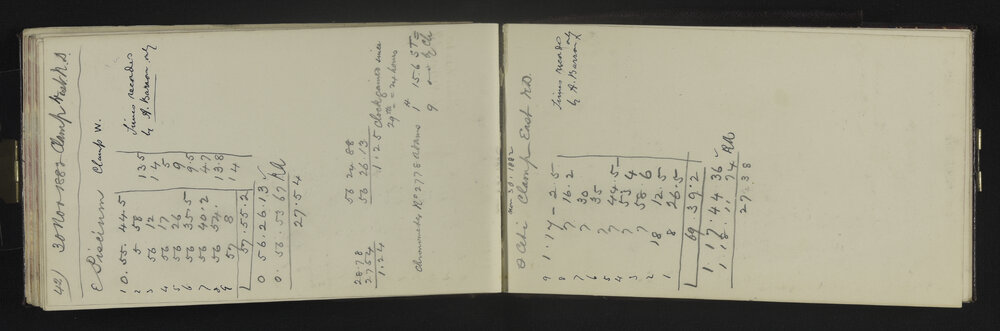 42) 30 Nov 1882 Clamp West R.D
ε Piscium Clamp W.
times recorded
by A. Barron only
1 0. 55. 44.5
2 5 58 13.5
3 56 12 14
4 56 17 5
5 56 26 9
6 56 35.5 9.5
7 56 40.2 4.7
8 56 54. 13.8
9 57 8 14
57.55.2
0 56.26.13
0. 53.67 Rd
27.54
28.78
27.54
1.24
56 24.88
56 26.13
1.25 Clock gained since
29th = 24 hours
Chronometer No 2778 Adams,
9
θ Ceti Clamp East R.D.
Nov 30. 1882
times recorded
by A. Barron
9 1. 17 - 2.5
8 7 16.2
7 7 30
6 7 35
5 7 44.5
4 7 53.4
3 7 58.6
2 18 12.5
1 8 26.5
69 39.2
1 17.44 36
1 18.11 74 Rd
27.38